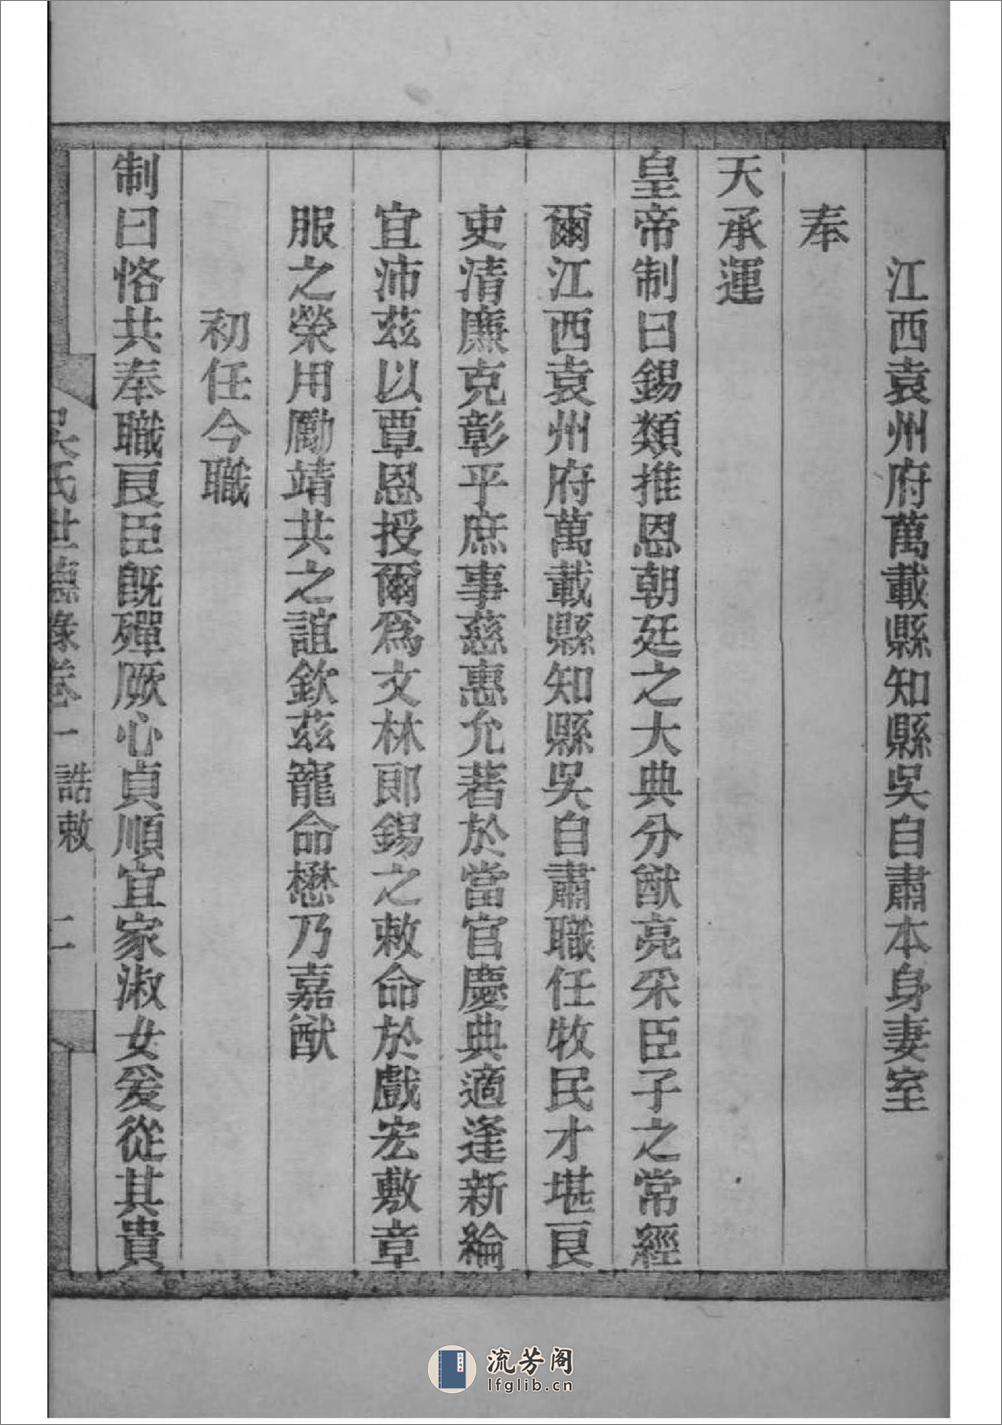 江西袁州府萬載縣知縣吳自肅本身妻室
奉
天承運
皇帝制曰錫類推恩朝廷之大典分猷亮采臣子之常經
爾江西袁州府萬載縣知縣吳自肅職任牧民才堪良
吏清廉克彰乎庶事慈惠允著於當官慶典適逢新綸
宜沛茲以覃恩授爾爲文林郎錫之敕命於戲宏敷章
服之榮用勵靖共之誼欽茲寵命懋乃嘉猷
初任今職
制曰恪共奉職良臣旣殫厥心貞順宜家淑女爰從其貴
吳氏世德錄卷一 誥敕 二
流芳阁
lfglib.cn